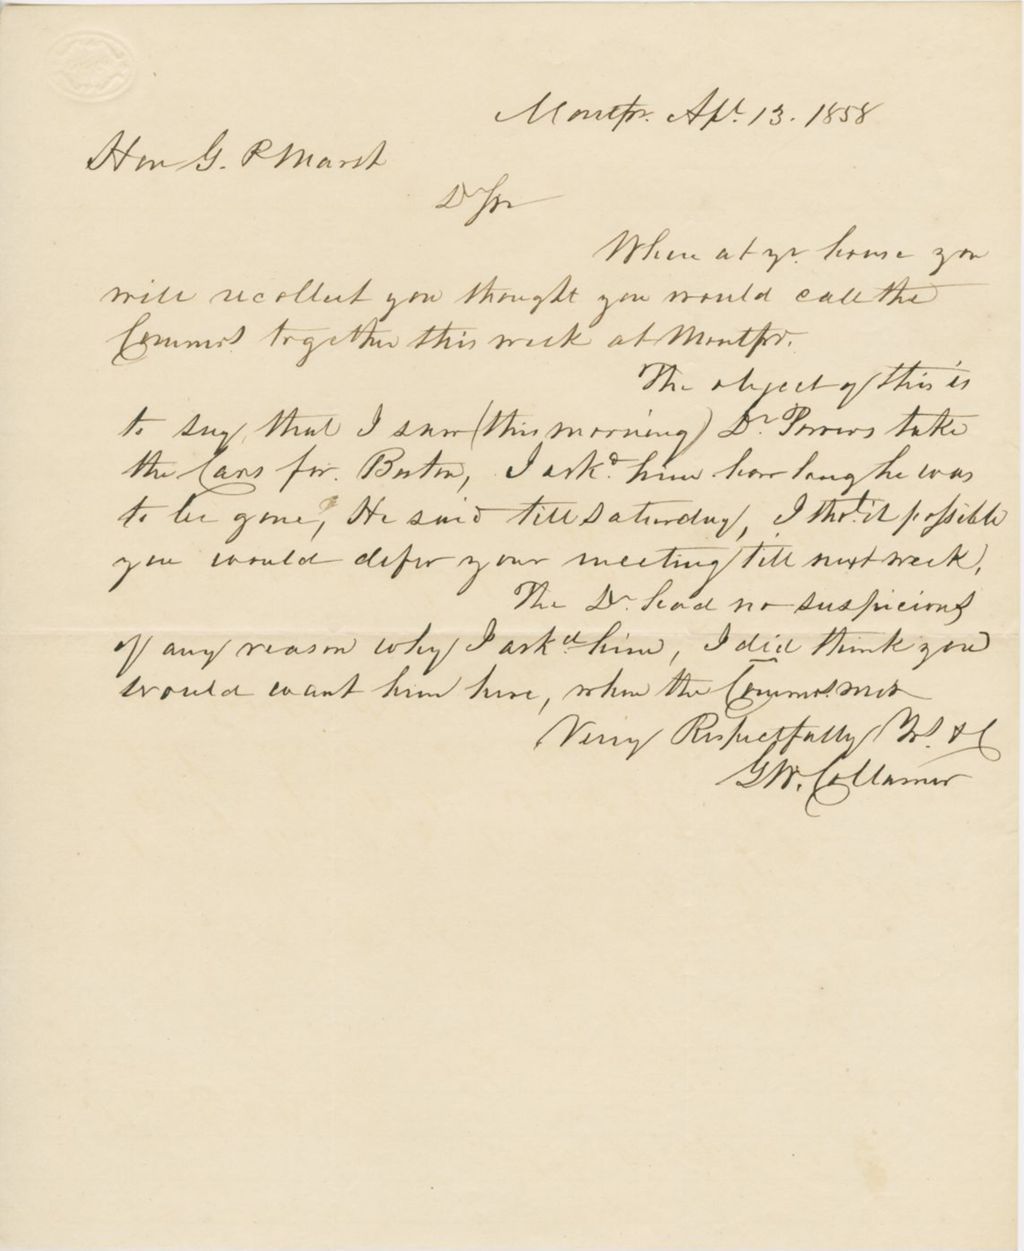 Montpr. Apl. 13. 1858
Hon G. P. Marsh
Dr Sir
When at yr. house you
will recollect you thought you would call the
Commrs together this week at Montpr.
The object of this is
to say, that I saw (this morning) Dr. Powers take
the Cars for Boston, I askd. him how long he was
to be gone, He said till saturday, I tho't it possible
you would defer your meeting till next week.
The Dr. had no suspicions
of any reason why I askd him, I did think you
would want him here, when the Commrs. met
Very Respectfully Yrs. &c
G W. Collamer